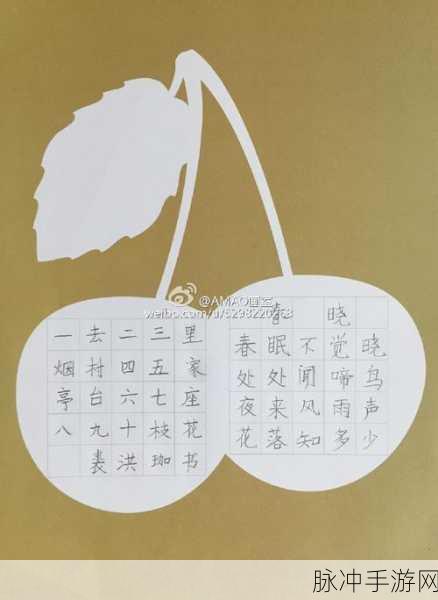 @AMAO画室
春 晓
春眠不觉晓
处处闻啼鸟
夜来风雨声
花落知多少
一去二三里
烟村四五家
亭台六七座
八九十枝花
洪珈书
脉冲手游网